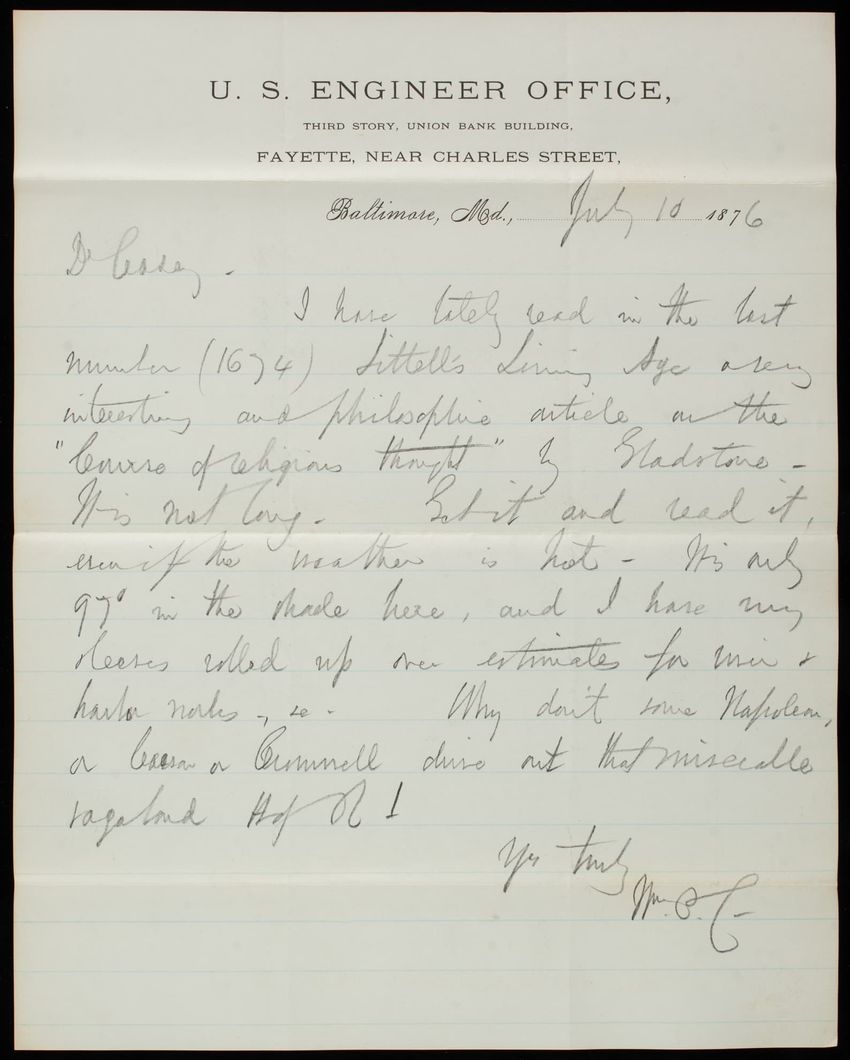 U. S. ENGINEER OFFICE,
THIRD STORY, UNION BANK BUILDING,
FAYETTE, NEAR CHARLES STREET,
Baltimore, Md., July 10 1876
Dr Casey -
I have lately read in the last
number (1674) Littell's Living Age a very
interesting and philosophic article on the
"Course of religious thought" by Gladstone -
It is not long. Get it and read it,
even if the weather is hot - It is only
97° in the shade here, and I have my
sleeves rolled up over estimates for river &
harbor works -, &c - Why don't some Napoleon,
or Caesar or Cromwell drive out that miserable
vagabond H of R!
Yrs truly
Wm. P. C-